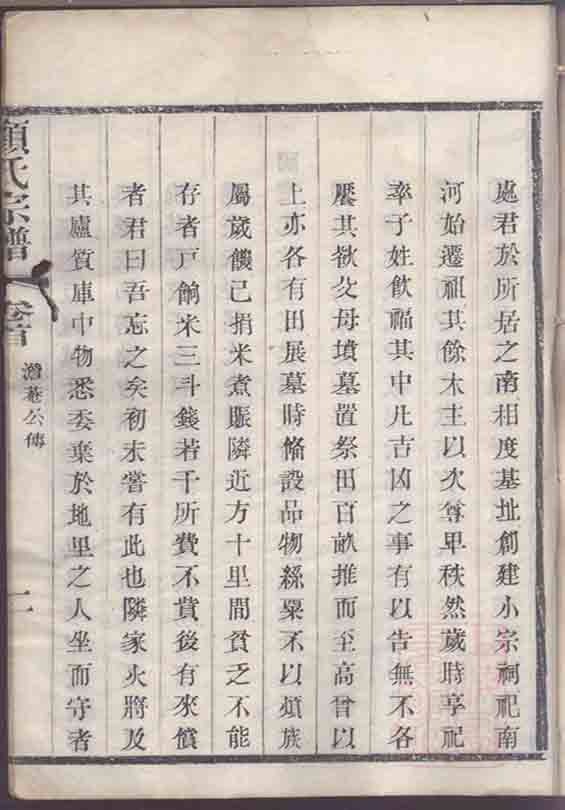 處君於所居之南相度基址創建小宗祠祀南
河始遷祖其餘木主以次尊卑秩然歲時享祀
率子姓飲福其中凡吉凶之事有以告無不各
饜其欲父母墳墓置祭田百畝推而至高曾以
上亦各有田展墓時備設品物絲粟不以煩族
屬歲饑己捐米煮賑隣近方十里間貧乏不能
存者戸餉米三斗錢若干所費不貲後有來償
者君曰吾忘之矣初未嘗有此也隣家火將及
其廬質庫中物悉委棄於地里之人坐而守者
顧氏宗譜
卷首
濳菴公傳
二